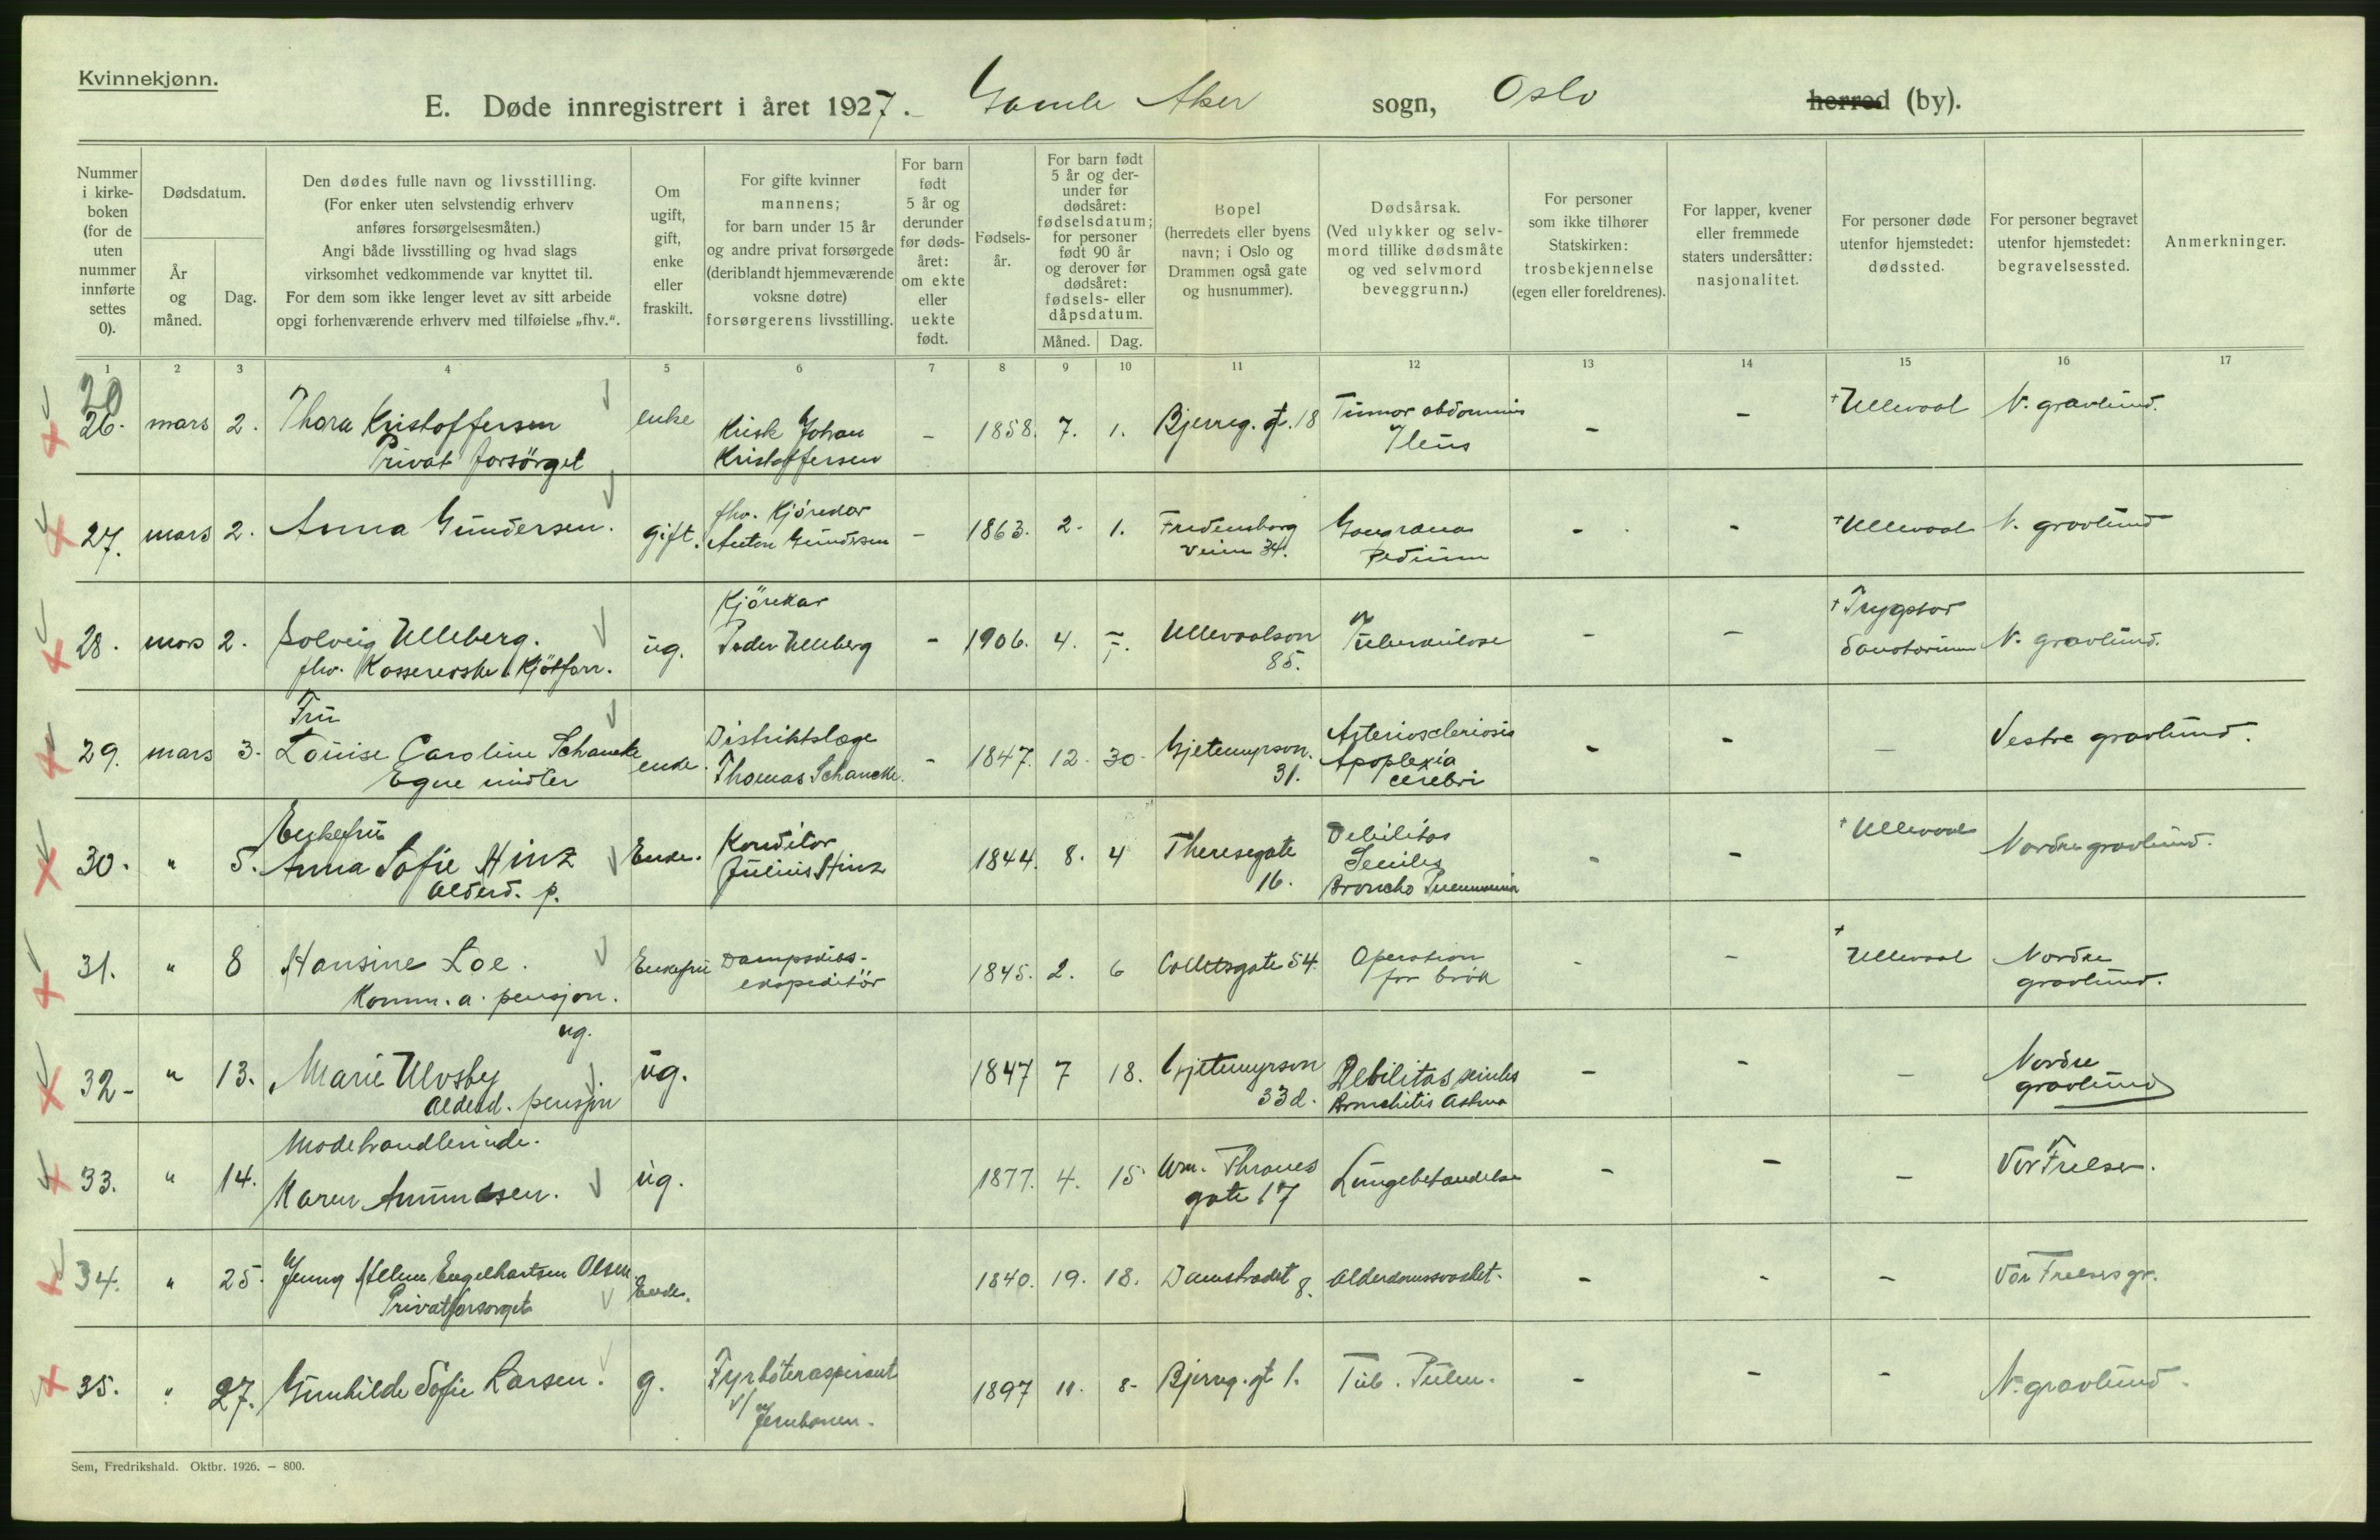 Kvinnekjønn.
E. Døde innregistrert i året 1927. Gamle Aker sogn, Oslo herred (by).
Nummer i kirke- boken (for de uten nummer innførte settes 0).
Dødsdatum.
År og måned.
Dag.
Den dødes fulle navn og livsstilling.
(For enker uten selvstendig erhverv anføres forsørgelsesmåten.)
Angi både livsstilling og hvad slags virksomhet vedkommende var knyttet til.
For dem som ikke lenger levet av sitt arbeide opgi forhenværende erhverv med tilføielse „fhv.“.
Om ugift, gift, enke eller fraskilt.
For gifte kvinner mannens; for barn under 15 år og andre privat forsørgede (deriblandt hjemmeværende voksne døtre) forsørgerens livsstilling.
For barn født 5 år og derunder før døds- året: om ekte eller uekte født.
Fødsels- år.
For barn født 5 år og der- under før dødsåret: fødselsdatum; for personer født 90 år og derover før dødsåret: fødsels- eller dåpsdatum.
Måned. Dag.
Bopel (herredets eller byens navn; i Oslo og Drammen også gate og husnummer).
Dødsårsak. (Ved ulykker og selv- mord tillike dødsmåte og ved selvmord beveggrunn.)
For personer som ikke tilhører Statskirken: trosbekjennelse (egen eller foreldrenes).
For lapper, kvener eller fremmede staters undersåtter: nasjonalitet.
For personer døde utenfor hjemstedet: dødssted.
For personer begravet utenfor hjemstedet: begravelsessted.
Anmerkninger.
1 2 3 4 5 6 7 8 9 10 11 12 13 14 15 16 17
20
26. mars 2. Thora Kristoffersen enke Krisk Johan - 1858. 7. 1. Bjerreg. gt. 18 Tumor abdominis - - + Ullevaal N. gravlund.
Privat forsörget Kristoffersen Ileus
27. mars 2. Anna Gundersen. gift. fhv. Kjörekar - 1863. 2. 1. Fredensborg Gangræna - - + Ullevaal N. gravlund
Anton Gundersen veien 34. Pedium
28. mars 2. Solveig Ulleberg. ug. Kjörekar - 1906. 4. - Ullevaalsvn Tuberkulose - - + Trygstad N. gravlund.
fhv. Kassererske i Kjötforr. Peder Ulleberg 85. Sanatorium
Fru
29. mars 3. Louise Caroline Schancke enke. Distriktslæge - 1847. 12. 30. Gjetemyrsvn. Arterioscleriosis - - - Vestre gravlund.
Egne midler Thomas Schancke. 31. Apoplexia cerebri
Enkefru
30. " 5. Anna Sofie Hinz Enke. Konditor 1844. 8. 4 Theresegate Debilitas - - + Ullevaal Nordre gravlund.
Alderd. p. Julius Hinz 16. Seniles
Broncho Pneumonia
31. " 8 Hansine Loe. Enkefru Dampskibs- 1845. 2. 6 Colletsgate 54. Operation - - + Ullevaal Nordre
Komm. a. pensjon. ekspeditör for brök gravlund.
ug.
32- " 13. Marie Ulvsby ug. 1847 7 18. Gjetemyrsvn Debilitas seniles - - - Nordre
Alderd. pensjon 33d. Bronchitis Astma gravlund
Modehandlerinde.
33. " 14. Karen Amundsen. ug. 1877. 4. 15 Wm. Thranes Lungebetændelse - - - Vor Frelser.
gate 17
34. " 25. Jenny Helene Engelhartsen Olsen Enke. 1840. 19. 18. Damstradet 8. Alderdomssvakhet. - - - Vor Frelsers gr.
Privatforsorget
35. " 27. Gunhilde Sofie Larsen. g. Fyrböteraspirant 1897 11. 8- Bjerreg. gt 1. Tub. Pulm. - - - N. gravlund.
v/ Jernbanen.
Sem, Fredrikshald. Oktbr. 1926. — 800.